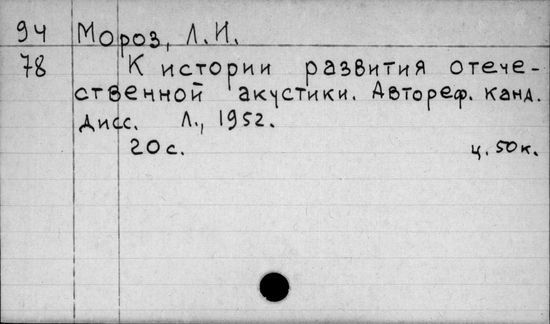 94 Мороз, Л.И.
78 К истории развития отече-
ственной акустики. Автореф. канд.
дисс. Л., 1952.
20 с. ц. 50 к.